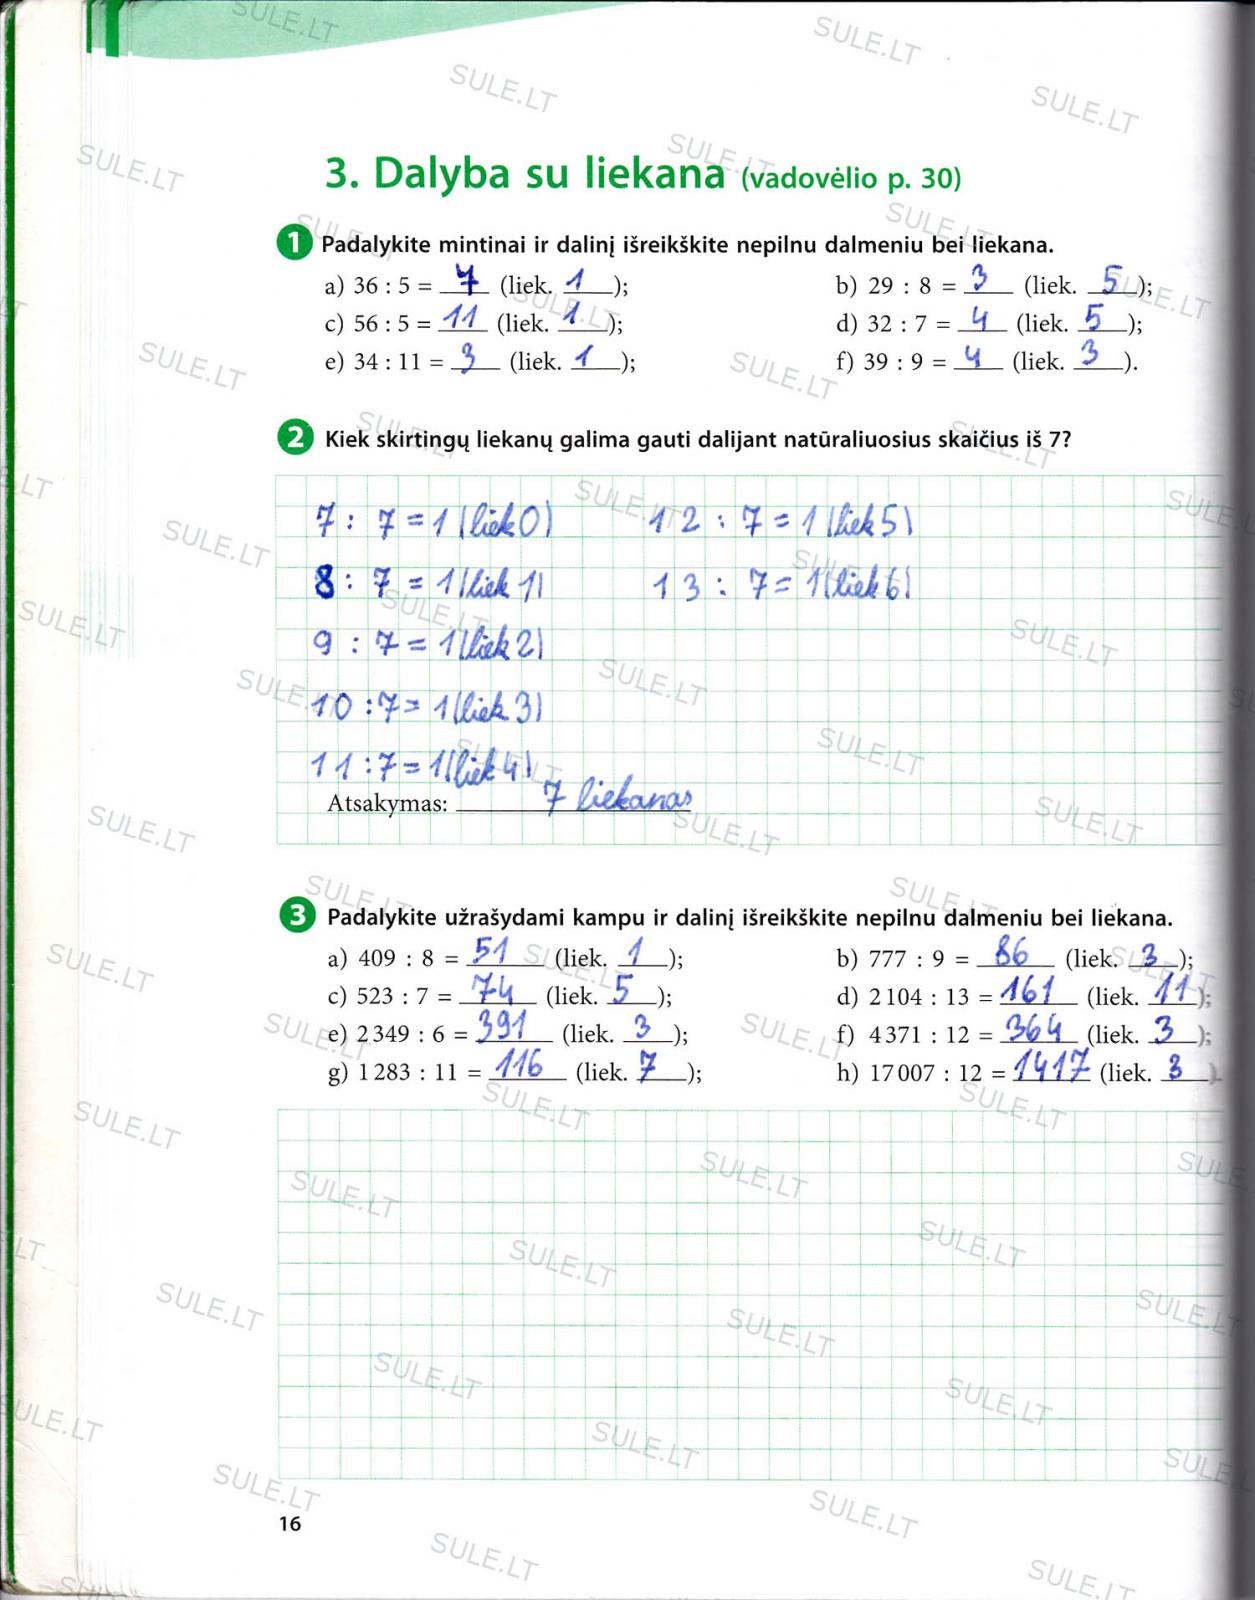 3. Dalyba su liekana (vadovėlio p. 30)
1 Padalykite mintinai ir dalinį išreikškite nepilnu dalmeniu bei liekana.
a) 36 : 5 = 7 (liek. 1); b) 29 : 8 = 3 (liek. 5);
c) 56 : 5 = 11 (liek. 1); d) 32 : 7 = 4 (liek. 5);
e) 34 : 11 = 3 (liek. 1); f) 39 : 9 = 4 (liek. 3).
2 Kiek skirtingų liekanų galima gauti dalijant natūraliuosius skaičius iš 7?
7 : 7 = 1 (liek 0) 12 : 7 = 1 (liek 5)
8 : 7 = 1 (liek 1) 13 : 7 = 1 (liek 6)
9 : 7 = 1 (liek 2)
10 : 7 = 1 (liek 3)
11 : 7 = 1 (liek 4)
Atsakymas: 7 liekanas
3 Padalykite užrašydami kampu ir dalinį išreikškite nepilnu dalmeniu bei liekana.
a) 409 : 8 = 51 (liek. 1); b) 777 : 9 = 86 (liek. 3);
c) 523 : 7 = 74 (liek. 5); d) 2 104 : 13 = 161 (liek. 11);
e) 2 349 : 6 = 391 (liek. 3); f) 4 371 : 12 = 364 (liek. 3);
g) 1 283 : 11 = 116 (liek. 7); h) 17 007 : 12 = 1417 (liek. 3).
16
SULE.LT